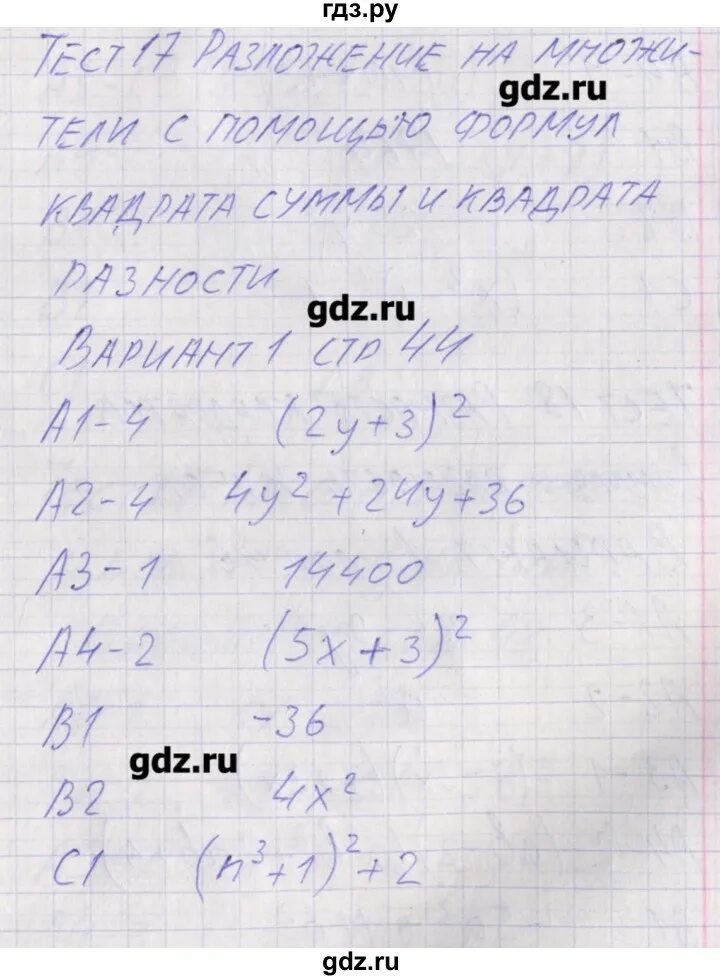 гдз.ру
Тест 17 Разложение на множи-
gdz.ru
тели с помощью формул
квадрата суммы и квадрата
разности
gdz.ru
Вариант 1 стр 44
А1-4 (2y+3)²
А2-4 4y²+24y+36
А3-1 14400
А4-2 (5x+3)²
В1 -36
gdz.ru
В2 4x²
С1 (n³+1)²+2
gdz.ru